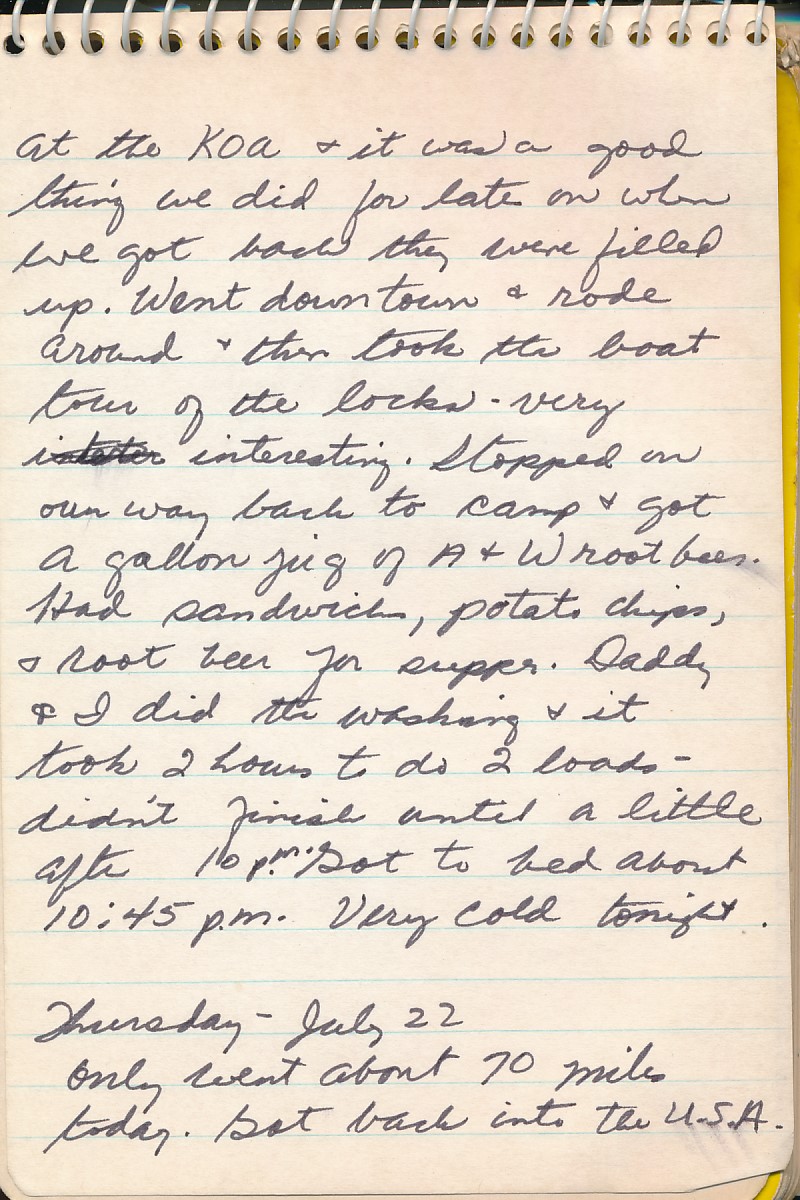 at the KOA & it was a good
thing we did for later on when
we got back they were filled
up. Went downtown & rode
around & then took the boat
tour of the locks - very
interesting. Stopped on
our way back to camp & got
a gallon jug of A & W root beer.
Had sandwiches, potato chips,
& root beer for supper. Daddy
& I did the washing & it
took 2 hours to do 2 loads -
didn't finish until a little
after 10 p.m. Got to bed about
10:45 p.m. Very cold tonight.
Thursday - July 22
Only went about 70 miles
today. Got back into the U.S.A.